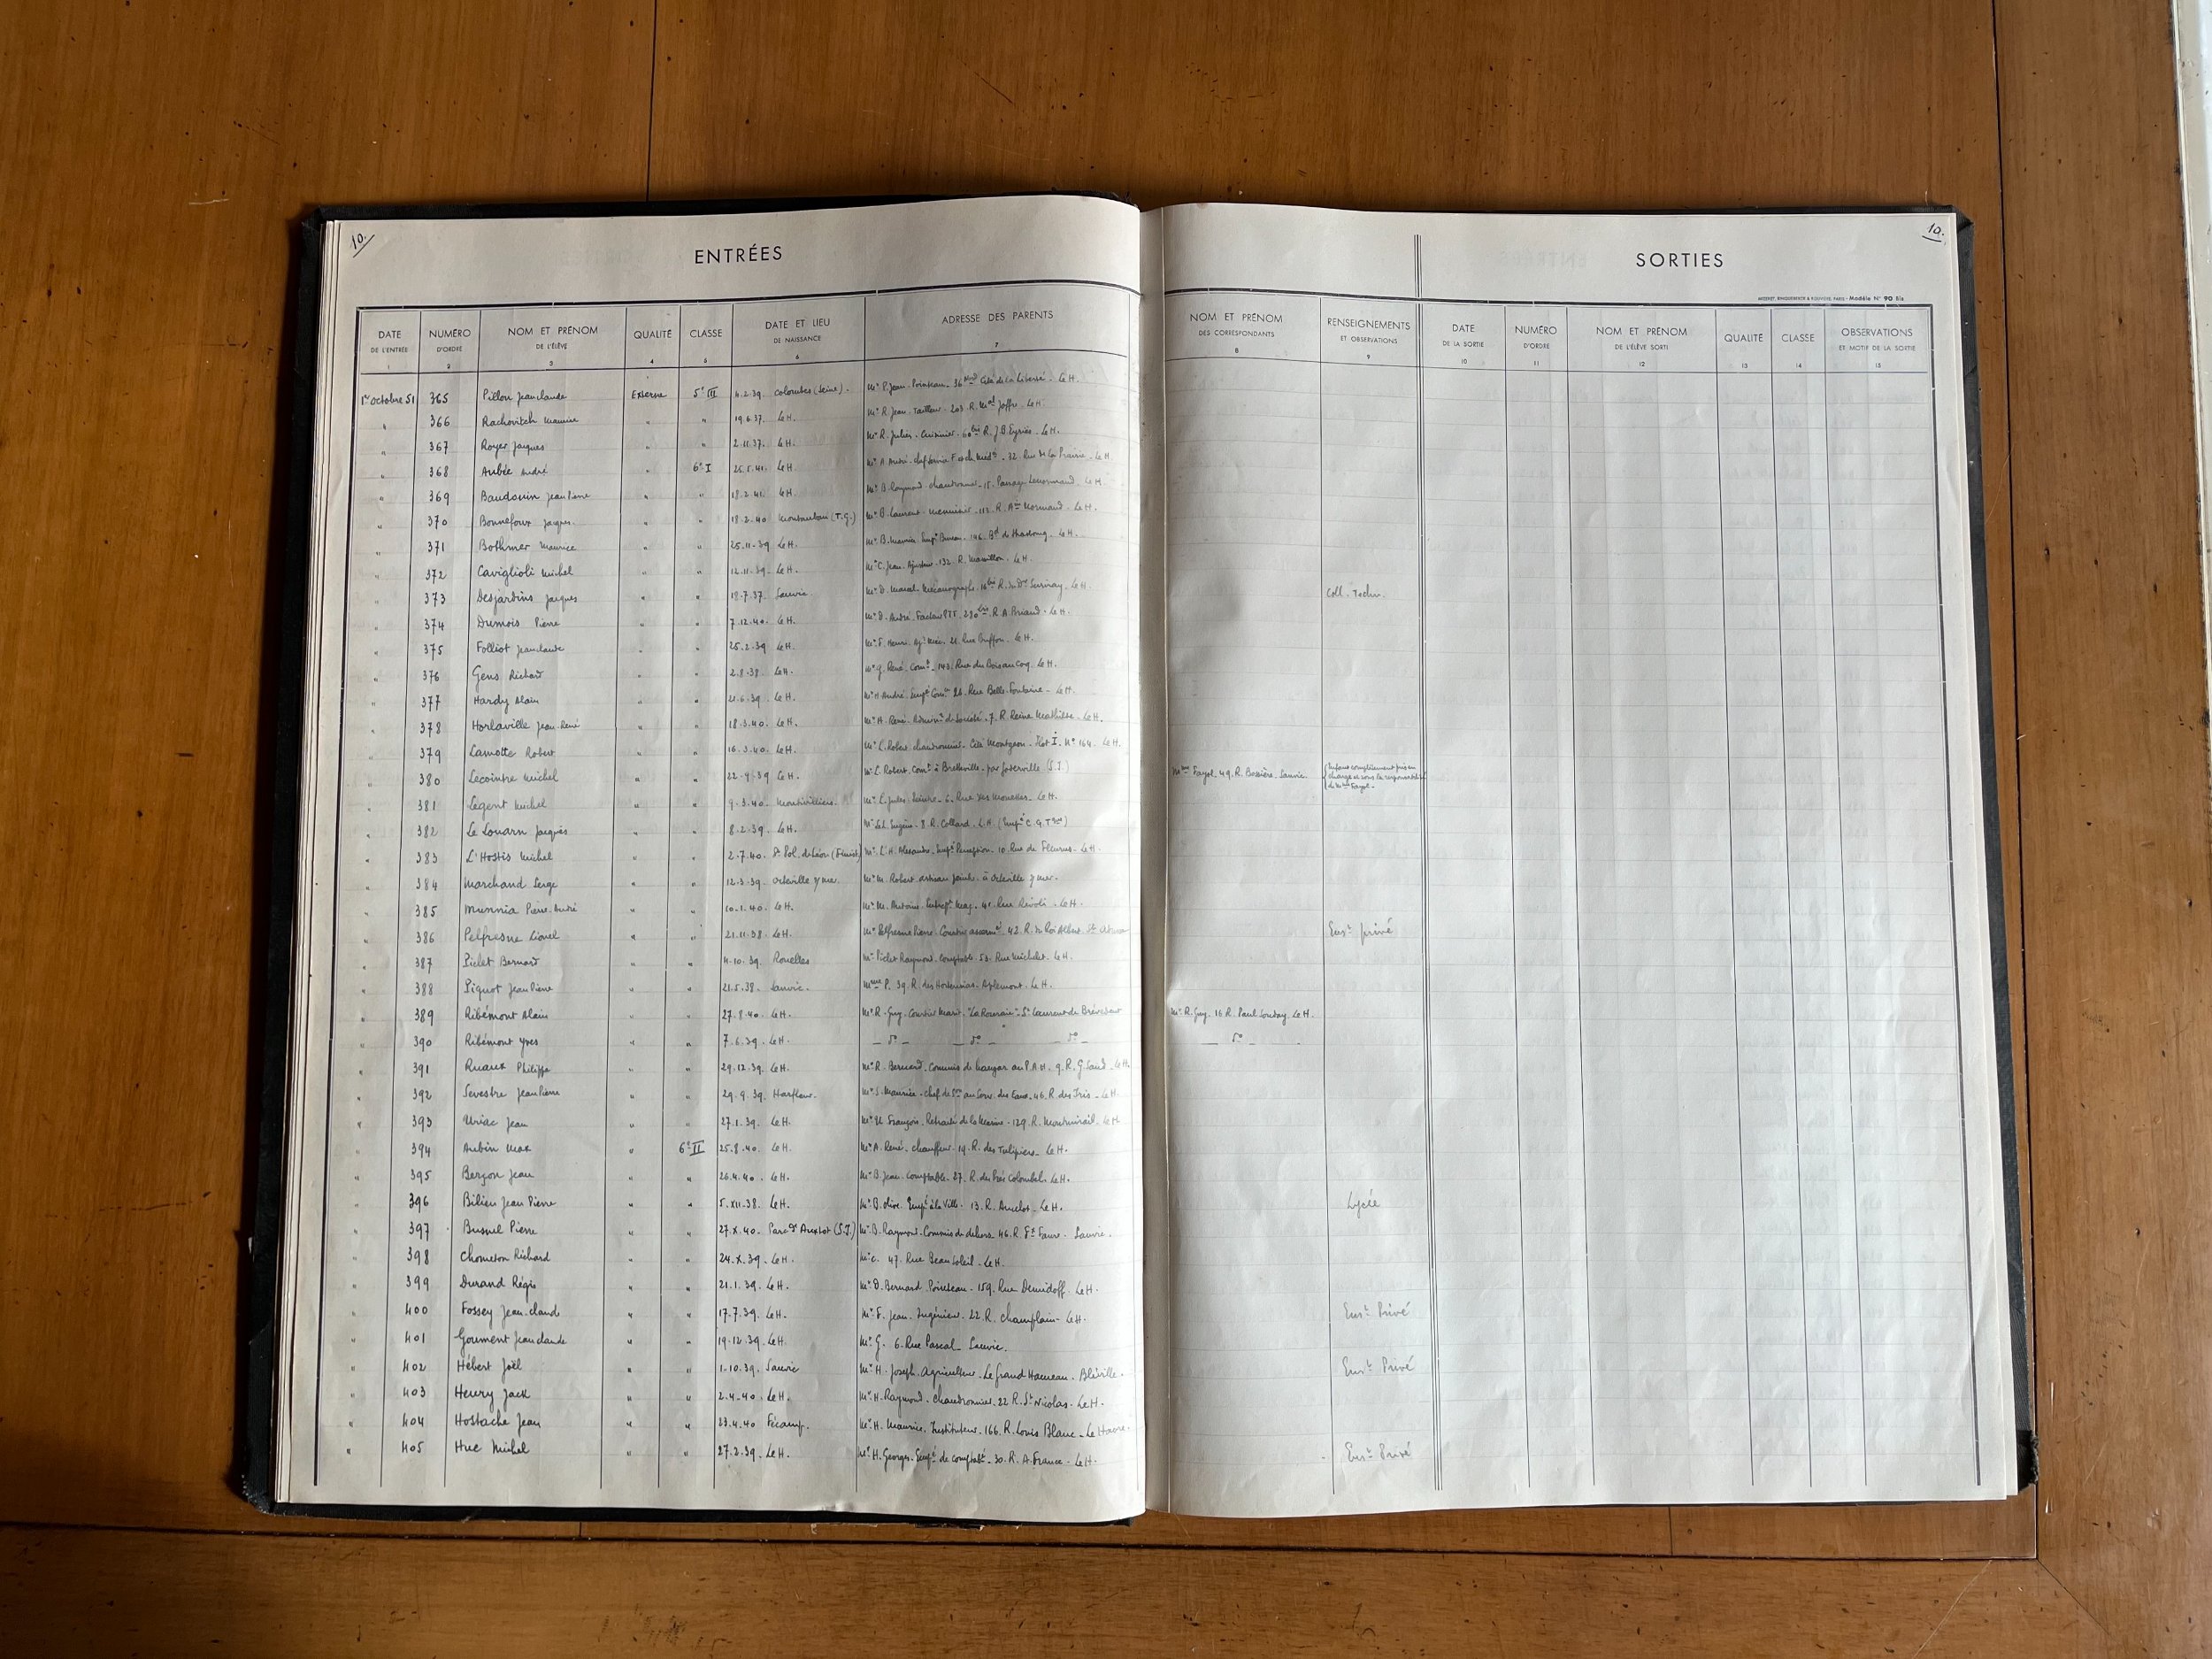 10.
ENTRÉES
DATE DE L'ENTRÉE 1
NUMÉRO D'ORDRE 2
NOM ET PRÉNOM DE L'ÉLÈVE 3
QUALITÉ 4
CLASSE 5
DATE ET LIEU DE NAISSANCE 6
ADRESSE DES PARENTS 7
10.
SORTIES
Modèle N° 90 Bis
NOM ET PRÉNOM DES CORRESPONDANTS 8
RENSEIGNEMENTS ET OBSERVATIONS 9
DATE DE LA SORTIE 10
NUMÉRO D'ORDRE 11
NOM ET PRÉNOM DE L'ÉLÈVE SORTI 12
QUALITÉ 13
CLASSE 14
OBSERVATIONS ET MOTIF DE LA SORTIE 15
1er octobre 51 365 Pillon Jean claude Externe 5e III 4.2.39. Colombes (Seine). Mr P. Jean. Pointeau. 36 Cité de la Liberté. Le H.
" 366 Rachovitch Maurice " " 19.6.37. Le H. Mr R. Jean. Tailleur. 203. R. Mal Joffre. Le H.
" 367 Royer Jacques " " 2.11.37. Le H. Mr R. Julien. Cuisinier. 60 bis R. J.B. Eyriès. Le H.
" 368 Aubée André " 6e I 26.5.41. Le H. Mr A. André. chef service 32. Rue de la Prairie. Le H.
" 369 Baudouin Jean Pierre " " 18.2.41. Le H. Mr B. Raymond. chaudronnier. 15. Passage Lenormand. Le H.
" 370 Bonnefoux Jacques. " " 18.2.40 Montauban (T.G.) Mr B. Laurent. menuisier. 113. R. Atin Normand. Le H.
" 371 Bothmer Maurice " " 25.11.39 Le H. Mr B. Maurice. Empé Bureau. 146. Bd de Strasbourg. Le H.
" 372 Caviglioli Michel " " 12.11.39. Le H. Mr C. Jean. Ajusteur. 132. R. Massillon. Le H.
" 373 Desjardins Jacques " " 18.7.37. Sanvic Mr D. Marcel. Mécanographe. 16 bis R. du Dr Suriray. Le H. Coll. Techn.
" 374 Dumois Pierre " " 7.12.40. Le H. Mr D. André. Facteur PTT. 230 bis R. A. Briand. Le H.
" 375 Folliot Jean claude " " 25.2.39 Le H. Mr F. Henri. Aj. Méc. 21. Rue Buffon. Le H.
" 376 Gens Richard " " 2.8.38. Le H. Mr G. René. Comt. 143. Rue du Bois au Coq. Le H.
" 377 Hardy Alain " " 21.6.39. Le H. Mr H. André. Empé Comt. 26. Rue Belle-Fontaine. Le H.
" 378 Horlaville Jean-René " " 18.3.40. Le H. Mr H. René. Adminr de Société. 7. R. Reine Mathilde. Le H.
" 379 Lamotte Robert " " 16.3.40. Le H. Mr L. Robert. chaudronnier. Cité Montgeon. Ilot I. No 164. Le H.
" 380 Lecointre Michel " " 22.9.39 Le H. Mr L. Robert. Comt à Bretteville. par Goderville. (S.I) Mme Fayol. 49. R. Bossière. Sanvic. (Enfant complètement pris en
charge et sous la responsabilité
de Mme Fayol.
" 381 Legent Michel " " 9.3.40. Montivilliers. Mr L. Jules. Peintre. 6. Rue des Mouettes. Le H.
" 382 Le Louarn Jacques " " 8.2.39. Le H. Mr Le L. Eugène. 8. R. Collard. L.H. (Empé C.G.Tque)
" 383 L'Hostis Michel " " 2.7.40. St Pol. de Léon (Finist) Mr L'H. Alexandre. Empé Perception. 10. Rue de Fleurus. Le H.
" 384 Marchand Serge " " 12.3.39. Octeville s/mer. Mr M. Robert. artisan peintre. à Octeville s/mer.
" 385 Munnia Pierre-André " " 10.1.40. Le H. Mr M. Antoine. 41. Rue Rivoli. Le H.
" 386 Pelfresne Lionel " " 21.11.38. Le H. Mr Pelfresne Pierre. Courtier assermté. 42. R. du Roi Albert. Ste Adresse Enst privé
" 387 Piclet Bernard " " 4.10.39. Rouelles Mr Piclet Raymond. comptable. 53. Rue Michelet. Le H.
" 388 Piquot Jean Pierre " " 21.5.38. Sanvic. Mme P. 39. R. des Hortensias. Aplemont. Le H.
" 389 Ribémont Alain " " 27.8.40. Le H. Mr R. Guy. Courtier Marit. "La Roseraie". St Laurent de Brévedent Mr R. Guy. 16 R. Paul Souday. Le H.
" 390 Ribémont Yves " " 7.6.39. Le H. _ do _ _ do _ _ do _ _ do _
" 391 Ruaux Philippe " " 29.12.39. Le H. Mr R. Bernard. Commis de hangar au P.A.H. 9. R. G. Sand. Le H.
" 392 Sevestre Jean Pierre " " 29.9.39. Harfleur. Mr S. Maurice. Chef de Son au Serv. des Eaux. 46. R. des Iris. Le H.
" 393 Uriac Jean " " 27.1.39. Le H. Mr U. François. Retraité de la Marine. 129. R. Montmirail. Le H
" 394 Aubin Max " 6e II 25.8.40. Le H. Mr A. René. chauffeur. 19. R. des Tulipiers. Le H.
" 395 Berzon Jean " " 26.4.40. Le H. Mr B. Jean. Comptable. 27. R. du Pré Colombel. Le H.
" 396 Bilien Jean Pierre " " 5.XII.38. Le H. Mr B. Olive. Empé à la Ville. 13. R. Ancelot. Le H. Lycée
" 397 Busnel Pierre " " 27.X.40. Parc d'Anxtot (S.I) Mr B. Raymond. Commis de dehors. 46. R. Fx Faure. Sanvic.
" 398 Chometon Richard " " 24.X.39. Le H. Mr C. 47. Rue Beau Soleil. Le H.
" 399 Durand Régis " " 21.1.39. Le H. Mr D. Bernard. Pointeau. 159. Rue Demidoff. Le H.
" 400 Fossey Jean-claude " " 17.7.39. Le H. Mr F. Jean. Ingénieur. 22. R. Champlain. Le H. Enst Privé
" 401 Goument Jean claude " " 19.12.39. Le H. Mr G. 6. Rue Pascal. Sanvic.
" 402 Hébert Joël " " 1.10.39. Sanvic Mr H. Joseph. Agriculteur. Le Grand Hameau. Bléville. Enst Privé
" 403 Henry Jack " " 2.4.40. Le H. Mr H. Raymond. Chaudronnier. 22 R. St Nicolas. Le H.
" 404 Hostache Jean " " 23.4.40. Fécamp. Mr H. Maurice. Instituteur. 166. R. Louis Blanc. Le Havre.
" 405 Hue Michel " " 27.2.39. Le H. Mr H. Georges. Empé de comptabté. 30. R. A. France. Le H. Enst Privé